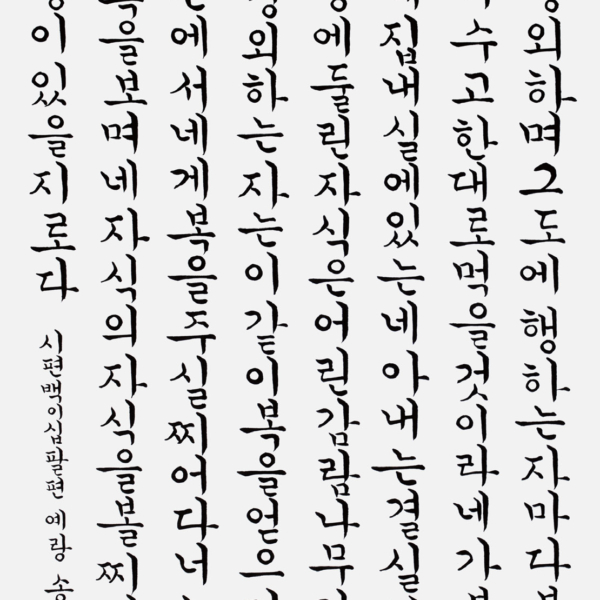 외하며그도에행하는자마다
수고한대로먹을것이라네가
집내실에있는네아내는결실
에둘린자식은어린감람나무
외하는자는이같이복을얻으
에서네게복을주실찌어다너
을보며네자식의자식을볼찌
이있을지로다
시편백이십팔편 예랑 송